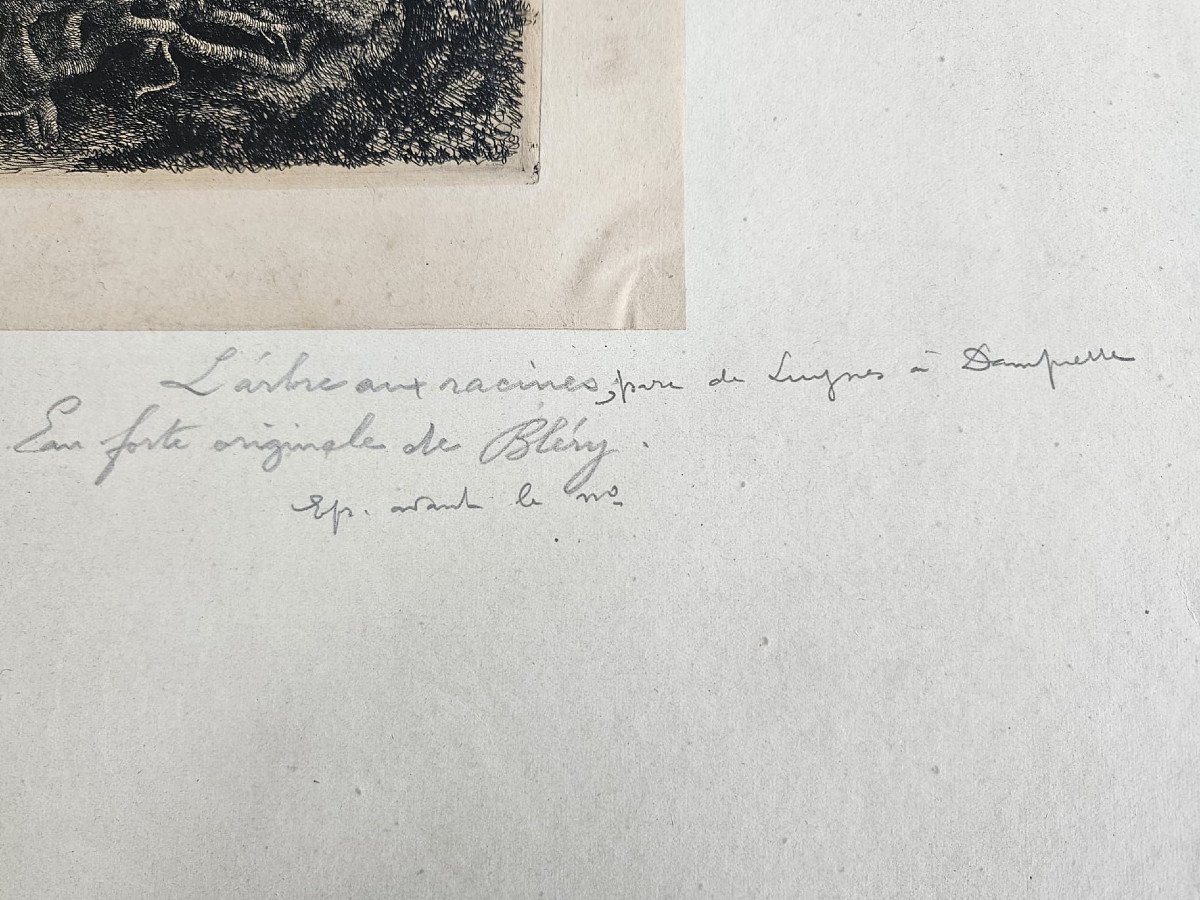 L'arbre aux racines, parc de Luynes à Dampierre
Eau forte originale de Bléry.
Ep. avant le nº